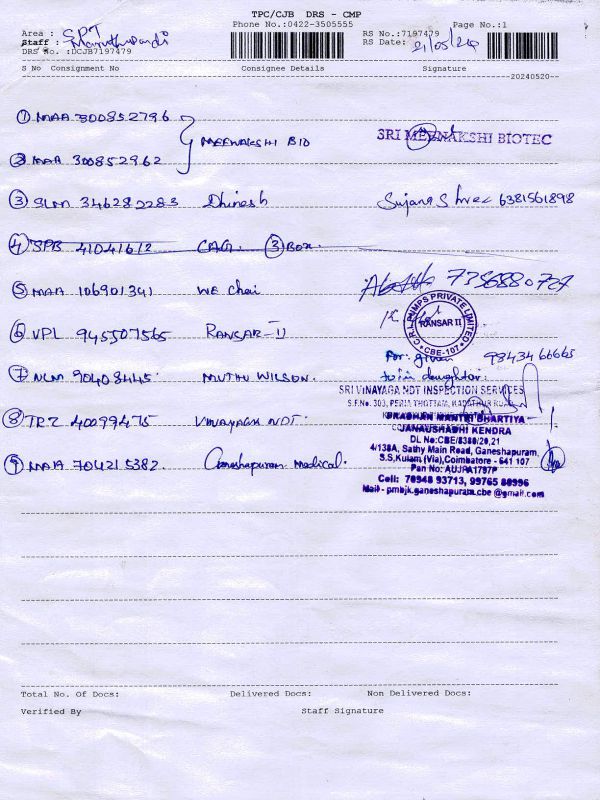 TPC/CJB DRS - CMP
Phone No.:0422-3505555 Page No.:1
Area : SPT
Staff : RS No.:7197479
DRS No. :DCJB7197479 RS Date: 21/05/24
S No Consignment No Consignee Details Signature
20240520
① MAA 300852796
MEENAKSHI BIO SRI MEENAKSHI BIOTEC
② MAA 300852962
③ SLM 346282283 Dhinesh Sujana Shree 6381561898
④ SPB 41041612 CAG. ③ Box.
⑤ MAA 106901341 WE Chai 7356880727
⑥ VPL 945507565 RANSAR-II
C.R.I. PUMPS PRIVATE LIMITED
RANSAR II
CBE-107
For: given 98434 66665
⑦ NLM 90408445 MUTHU WILSON. to in daughter.
SRI VINAYAGA NDT INSPECTION SERVICES
S.F.No. 303, PERIA THOTTAM,
⑧ TRZ 40099475 Vinayaga NDT.
PRADHAN MANTRI BHARTIYA
JANAUSHADHI KENDRA
DL No:CBE/8380/20,21
4/138A, Sathy Main Road, Ganeshapuram,
⑨ MAA 704215382. Ganeshapuram Medical.
S.S.Kulam (Via),Coimbatore - 641 107
Pan No: AUJPA1797P
Cell: 78948 93713, 99765 80996
Mail - pmbjk.ganeshapuram.cbe @gmail.com
Total No. Of Docs: Delivered Docs: Non Delivered Docs:
Verified By Staff Signature